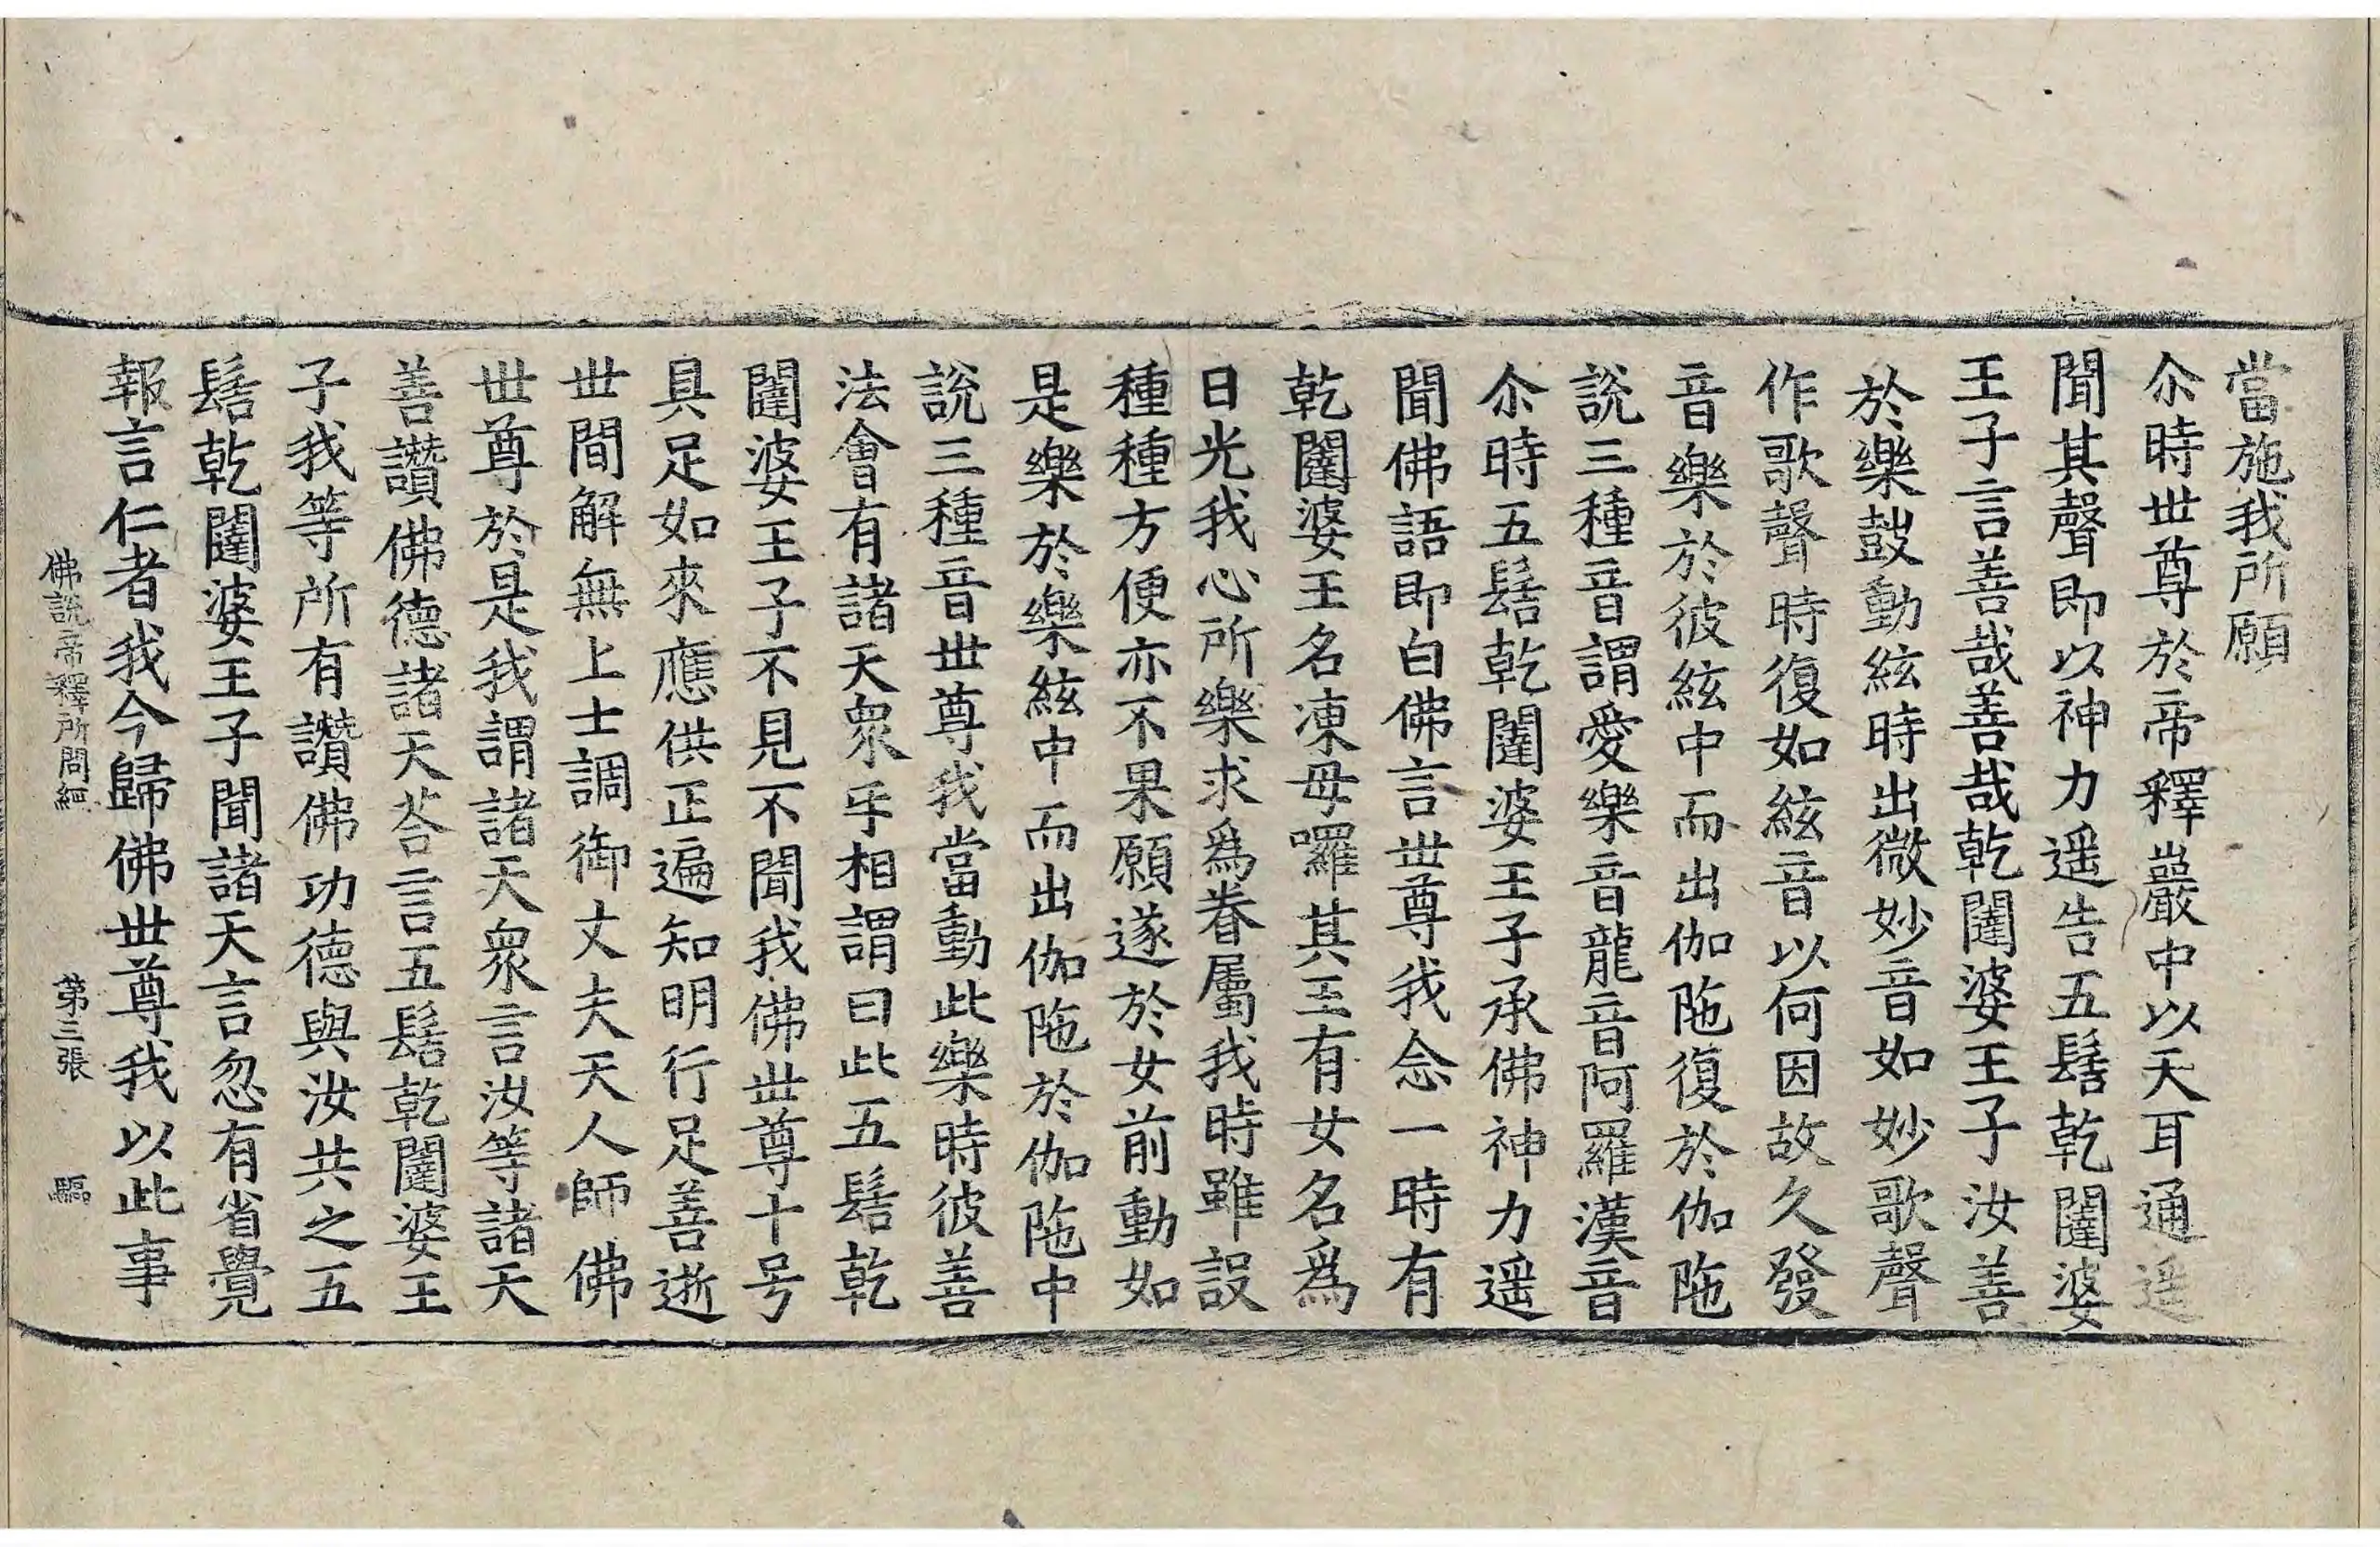 當施我所願
尒時世尊於帝釋巖中以天耳通遥
聞其聲即以神力遥告五髻乾闥婆
王子言善哉善哉乾闥婆王子汝善
於樂鼓動絃時出微妙音如妙歌聲
作歌聲時復如絃音以何因故久發
音樂於彼絃中而出伽陁復於伽陁
說三種音謂愛樂音龍音阿羅漢音
尒時五髻乾闥婆王子承佛神力遥
聞佛語即白佛言世尊我念一時有
乾闥婆王名凍母囉其王有女名爲
日光我心所樂求爲眷屬我時雖設
種種方便亦不果願遂於女前動如
是樂於樂絃中而出伽陁於伽陁中
說三種音世尊我當動此樂時彼善
法會有諸天衆乎相謂曰此五髻乾
闥婆王子不見不聞我佛世尊十号
具足如來應供正遍知明行足善逝
世間解無上士調御丈夫天人師佛
世尊於是我謂諸天衆言汝等諸天
善讚佛德諸天荅言五髻乾闥婆王
子我等所有讚佛功德與汝共之五
髻乾闥婆王子聞諸天言忽有省覺
報言仁者我今歸佛世尊我以此事
佛說帝釋所問經 第三張 驅